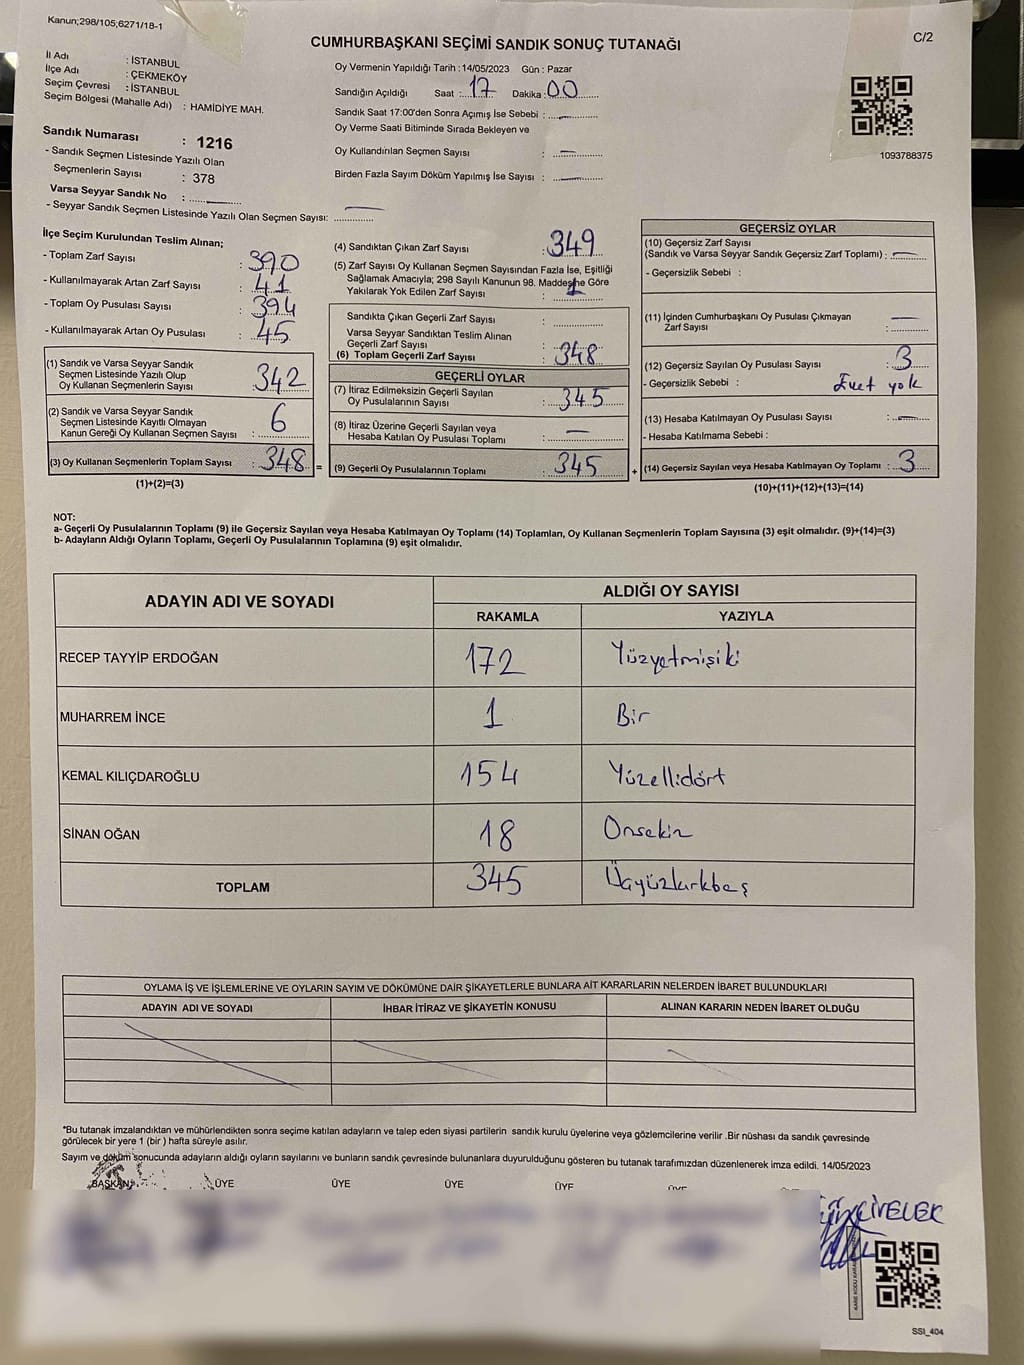 Kanun;298/105;6271/18-1
C/2
CUMHURBAŞKANI SEÇİMİ SANDIK SONUÇ TUTANAĞI
İl Adı : İSTANBUL
İlçe Adı : ÇEKMEKÖY
Seçim Çevresi : İSTANBUL
Seçim Bölgesi (Mahalle Adı) : HAMİDİYE MAH.
Sandık Numarası : 1216
- Sandık Seçmen Listesinde Yazılı Olan
Seçmenlerin Sayısı : 378
Varsa Seyyar Sandık No :
- Seyyar Sandık Seçmen Listesinde Yazılı Olan Seçmen Sayısı:
Oy Vermenin Yapıldığı Tarih : 14/05/2023 Gün : Pazar
Sandığın Açıldığı Saat : 17 Dakika : 00
Sandık Saat 17:00'den Sonra Açımış İse Sebebi :
Oy Verme Saati Bitiminde Sırada Bekleyen ve
Oy Kullandırılan Seçmen Sayısı :
Birden Fazla Sayım Döküm Yapılmış İse Sayısı :
1093788375
İlçe Seçim Kurulundan Teslim Alınan;
- Toplam Zarf Sayısı : 390
- Kullanılmayarak Artan Zarf Sayısı : 41
- Toplam Oy Pusulası Sayısı : 394
- Kullanılmayarak Artan Oy Pusulası : 45
(1) Sandık ve Varsa Seyyar Sandık
Seçmen Listesinde Yazılı Olup
Oy Kullanan Seçmenlerin Sayısı : 342
(2) Sandık ve Varsa Seyyar Sandık
Seçmen Listesinde Kayıtlı Olmayan
Kanun Gereği Oy Kullanan Seçmen Sayısı : 6
(3) Oy Kullanan Seçmenlerin Toplam Sayısı : 348 =
(1)+(2)=(3)
(4) Sandıktan Çıkan Zarf Sayısı : 349
(5) Zarf Sayısı Oy Kullanan Seçmen Sayısından Fazla İse, Eşitliği
Sağlamak Amacıyla; 298 Sayılı Kanunun 98. Maddesine Göre
Yakılarak Yok Edilen Zarf Sayısı : 1
Sandıkta Çıkan Geçerli Zarf Sayısı :
Varsa Seyyar Sandıktan Teslim Alınan
Geçerli Zarf Sayısı :
(6) Toplam Geçerli Zarf Sayısı : 348
GEÇERLİ OYLAR
(7) İtiraz Edilmeksizin Geçerli Sayılan
Oy Pusulalarının Sayısı : 345
(8) İtiraz Üzerine Geçerli Sayılan veya
Hesaba Katılan Oy Pusulası Toplamı :
(9) Geçerli Oy Pusulalarının Toplamı : 345 +
GEÇERSİZ OYLAR
(10) Geçersiz Zarf Sayısı
(Sandık ve Varsa Seyyar Sandık Geçersiz Zarf Toplamı) :
- Geçersizlik Sebebi :
(11) İçinden Cumhurbaşkanı Oy Pusulası Çıkmayan
Zarf Sayısı :
(12) Geçersiz Sayılan Oy Pusulası Sayısı : 3
- Geçersizlik Sebebi : Evet yok
(13) Hesaba Katılmayan Oy Pusulası Sayısı :
- Hesaba Katılmama Sebebi :
(14) Geçersiz Sayılan veya Hesaba Katılmayan Oy Toplamı : 3
(10)+(11)+(12)+(13)=(14)
NOT:
a- Geçerli Oy Pusulalarının Toplamı (9) ile Geçersiz Sayılan veya Hesaba Katılmayan Oy Toplamı (14) Toplamları, Oy Kullanan Seçmenlerin Toplam Sayısına (3) eşit olmalıdır. (9)+(14)=(3)
b- Adayların Aldığı Oyların Toplamı, Geçerli Oy Pusulalarının Toplamına (9) eşit olmalıdır.
ADAYIN ADI VE SOYADI ALDIĞI OY SAYISI
RAKAMLA YAZIYLA
RECEP TAYYİP ERDOĞAN 172 Yüzyetmişiki
MUHARREM İNCE 1 Bir
KEMAL KILIÇDAROĞLU 154 Yüzellidört
SİNAN OĞAN 18 Onsekiz
TOPLAM 345 Üçyüzkırkbeş
OYLAMA İŞ VE İŞLEMLERİNE VE OYLARIN SAYIM VE DÖKÜMÜNE DAİR ŞİKAYETLERLE BUNLARA AİT KARARLARIN NELERDEN İBARET BULUNDUKLARI
ADAYIN ADI VE SOYADI İHBAR İTİRAZ VE ŞİKAYETİN KONUSU ALINAN KARARIN NEDEN İBARET OLDUĞU
*Bu tutanak imzalandıktan ve mühürlendikten sonra seçime katılan adayların ve talep eden siyasi partilerin sandık kurulu üyelerine veya gözlemcilerine verilir .Bir nüshası da sandık çevresinde
görülecek bir yere 1 (bir ) hafta süreyle asılır.
Sayım ve döküm sonucunda adayların aldığı oyların sayılarını ve bunların sandık çevresinde bulunanlara duyurulduğunu gösteren bu tutanak tarafımızdan düzenlenerek imza edildi. 14/05/2023
BAŞKAN ÜYE ÜYE ÜYE ÜYE
CİVELEK
SSI_404